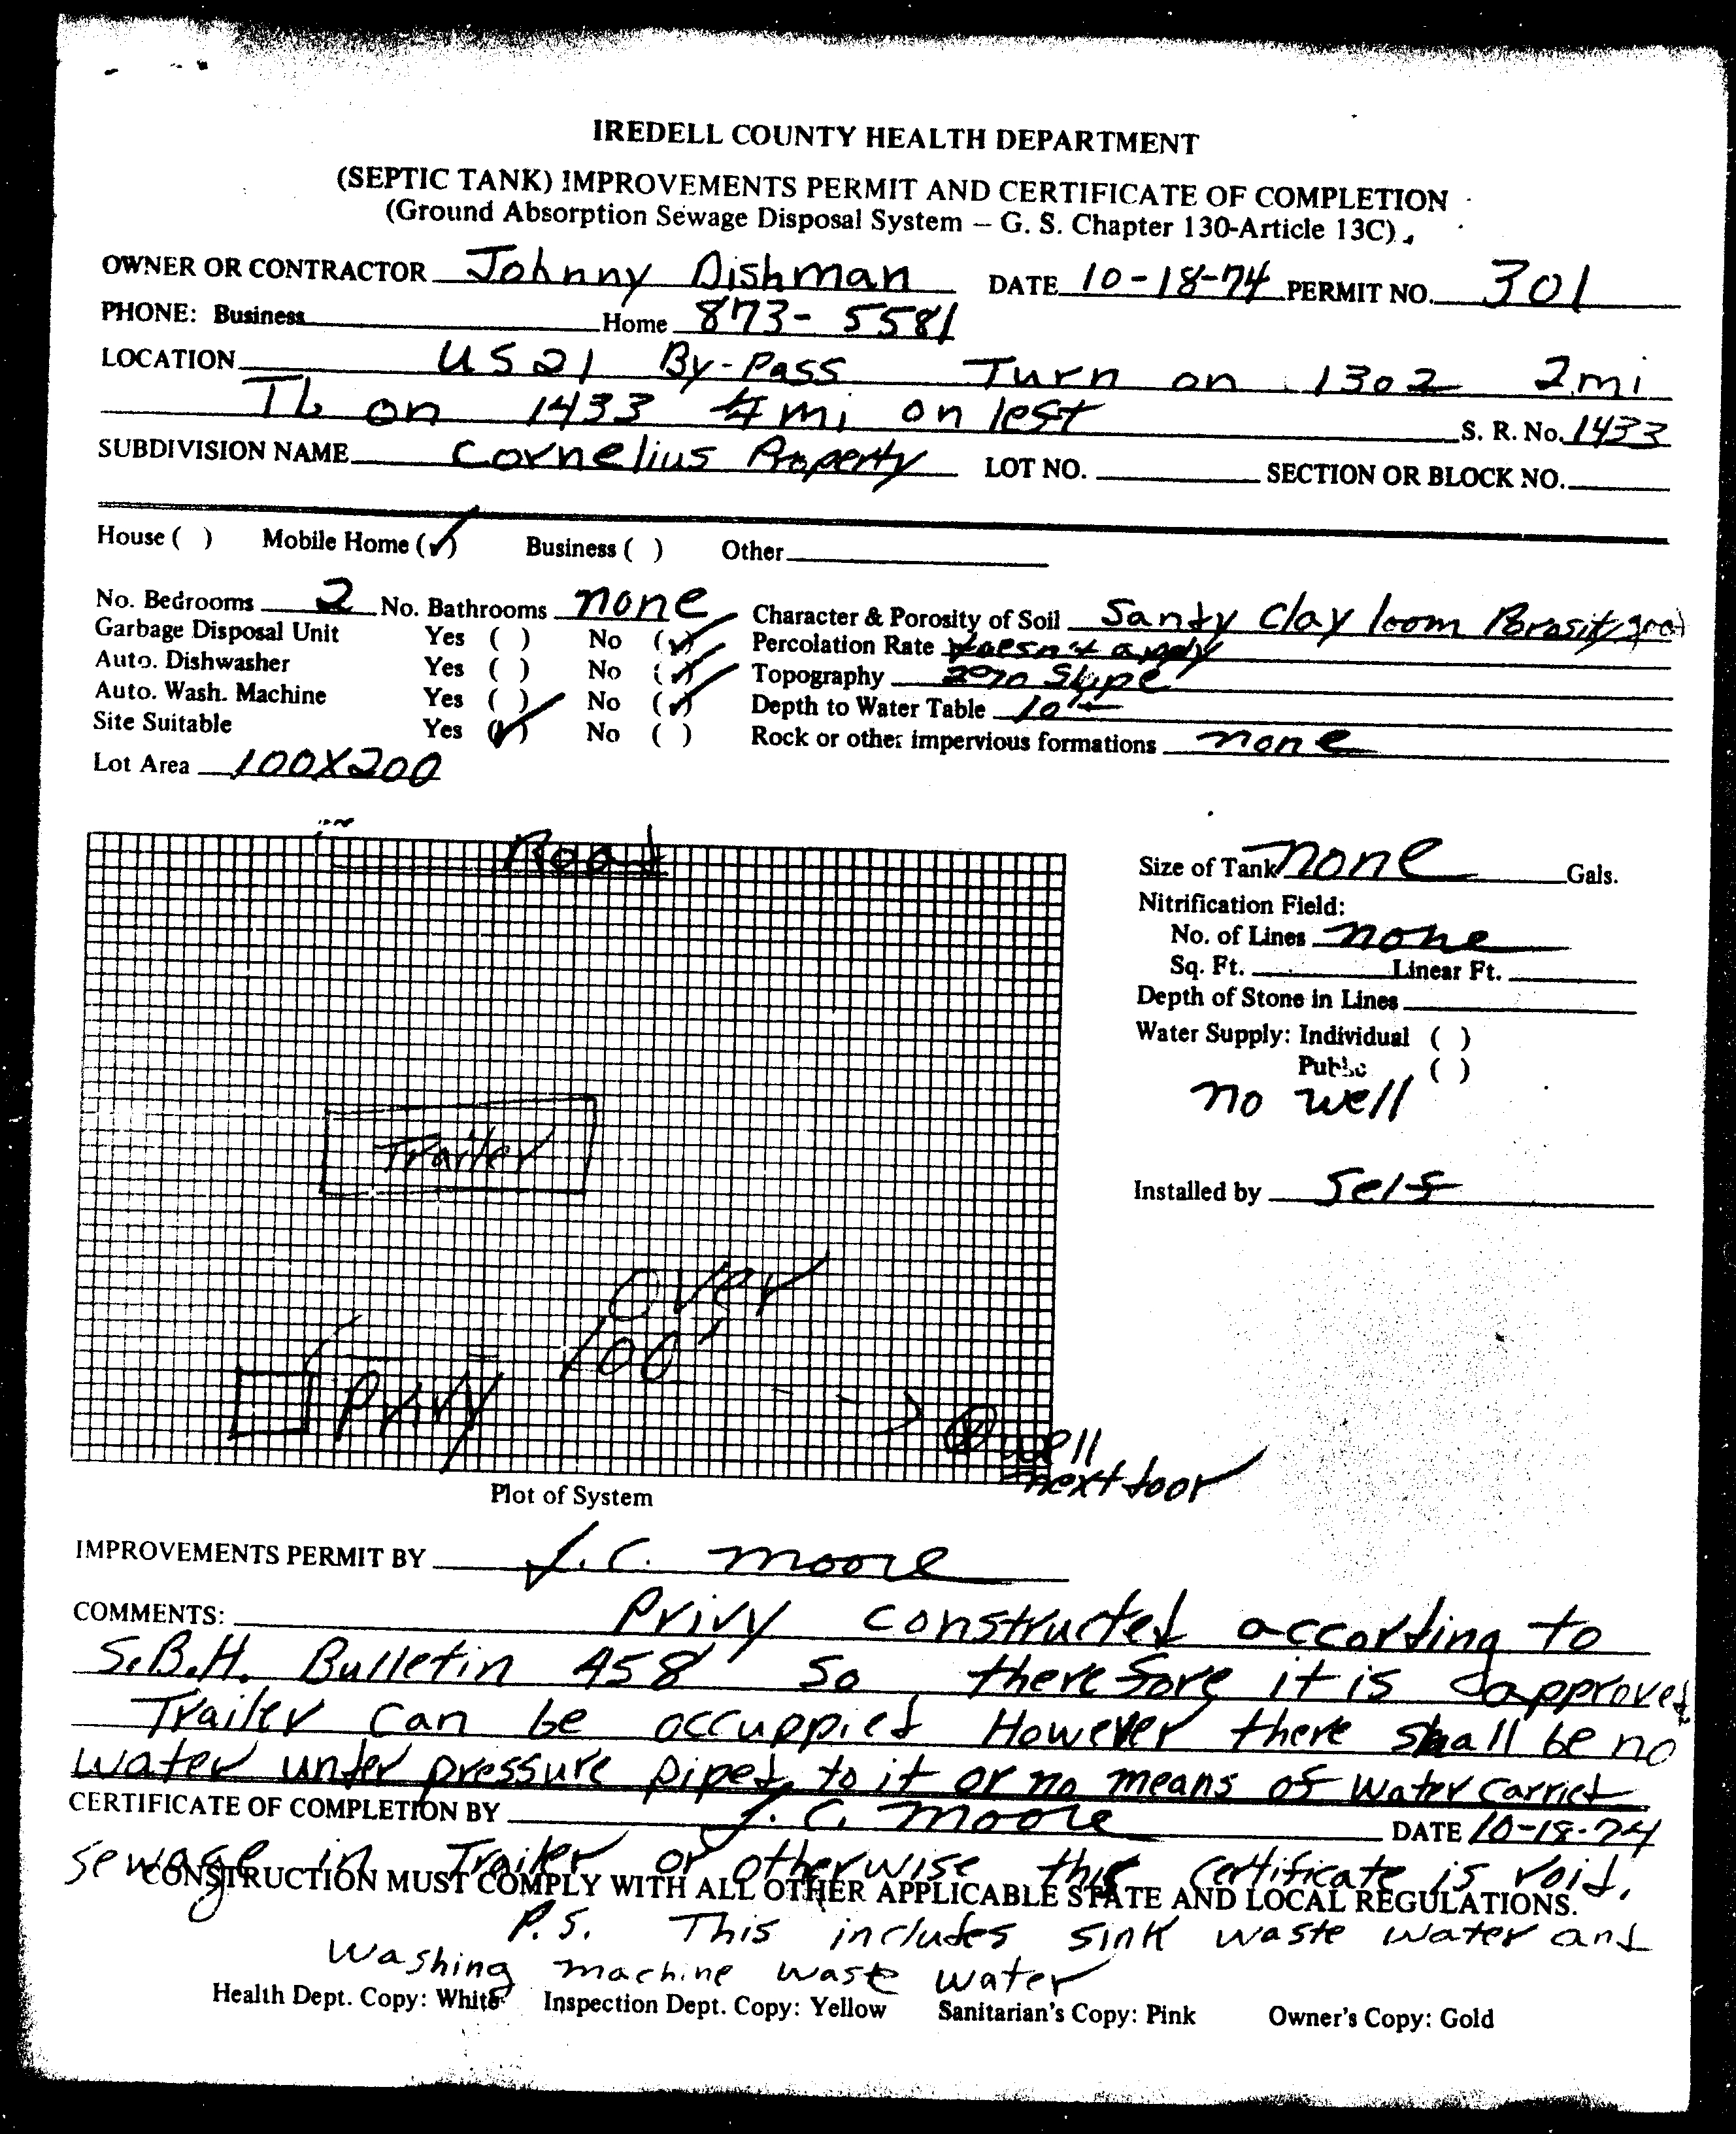 IREDELL COUNTY HEALTH DEPARTMENT
(SEPTIC TANK) IMPROVEMENTS PERMIT AND CERTIFICATE OF COMPLETION
(Ground Absorption Sewage Disposal System – G. S. Chapter 130-Article 13C)
OWNER OR CONTRACTOR Johnny Dishman DATE 10-18-74 PERMIT NO. 301
PHONE: Business Home 873-5581
LOCATION US 21 By-Pass Turn on 1302 2 mi
TL on 1433 mi on left S. R. No. 1433
SUBDIVISION NAME Cornelius Property LOT NO. SECTION OR BLOCK NO.
House ( ) Mobile Home (✓) Business ( ) Other
No. Bedrooms 2 No. Bathrooms none Character & Porosity of Soil Sandy Clay loom Porosity good
Garbage Disposal Unit Yes ( ) No (✓) Percolation Rate Doesn't apply
Auto. Dishwasher Yes ( ) No (✓) Topography 2% Slope
Auto. Wash. Machine Yes ( ) No (✓) Depth to Water Table 10'+
Site Suitable Yes (✓) No ( ) Rock or other impervious formations none
Lot Area 100X200
Road
Size of Tank none Gals.
Nitrification Field:
No. of Lines none
Sq. Ft. Linear Ft.
Depth of Stone in Lines
Water Supply: Individual ( )
Public ( )
no well
Trailer
Installed by Self
over
100'
Privy
well
next door
Plot of System
IMPROVEMENTS PERMIT BY J. C. Moore
COMMENTS: Privy constructed according to
S.B.H. Bulletin 458 so therefore it is approved
Trailer can be occuppied However there shall be no
water under pressure piped to it or no means of water carried
CERTIFICATE OF COMPLETION BY J. C. Moore DATE 10-18-74
sewage in Trailer or otherwise this certificate is void.
CONSTRUCTION MUST COMPLY WITH ALL OTHER APPLICABLE STATE AND LOCAL REGULATIONS.
P.S. This includes sink waste water and
washing machine waste water
Health Dept. Copy: White Inspection Dept. Copy: Yellow Sanitarian's Copy: Pink Owner's Copy: Gold